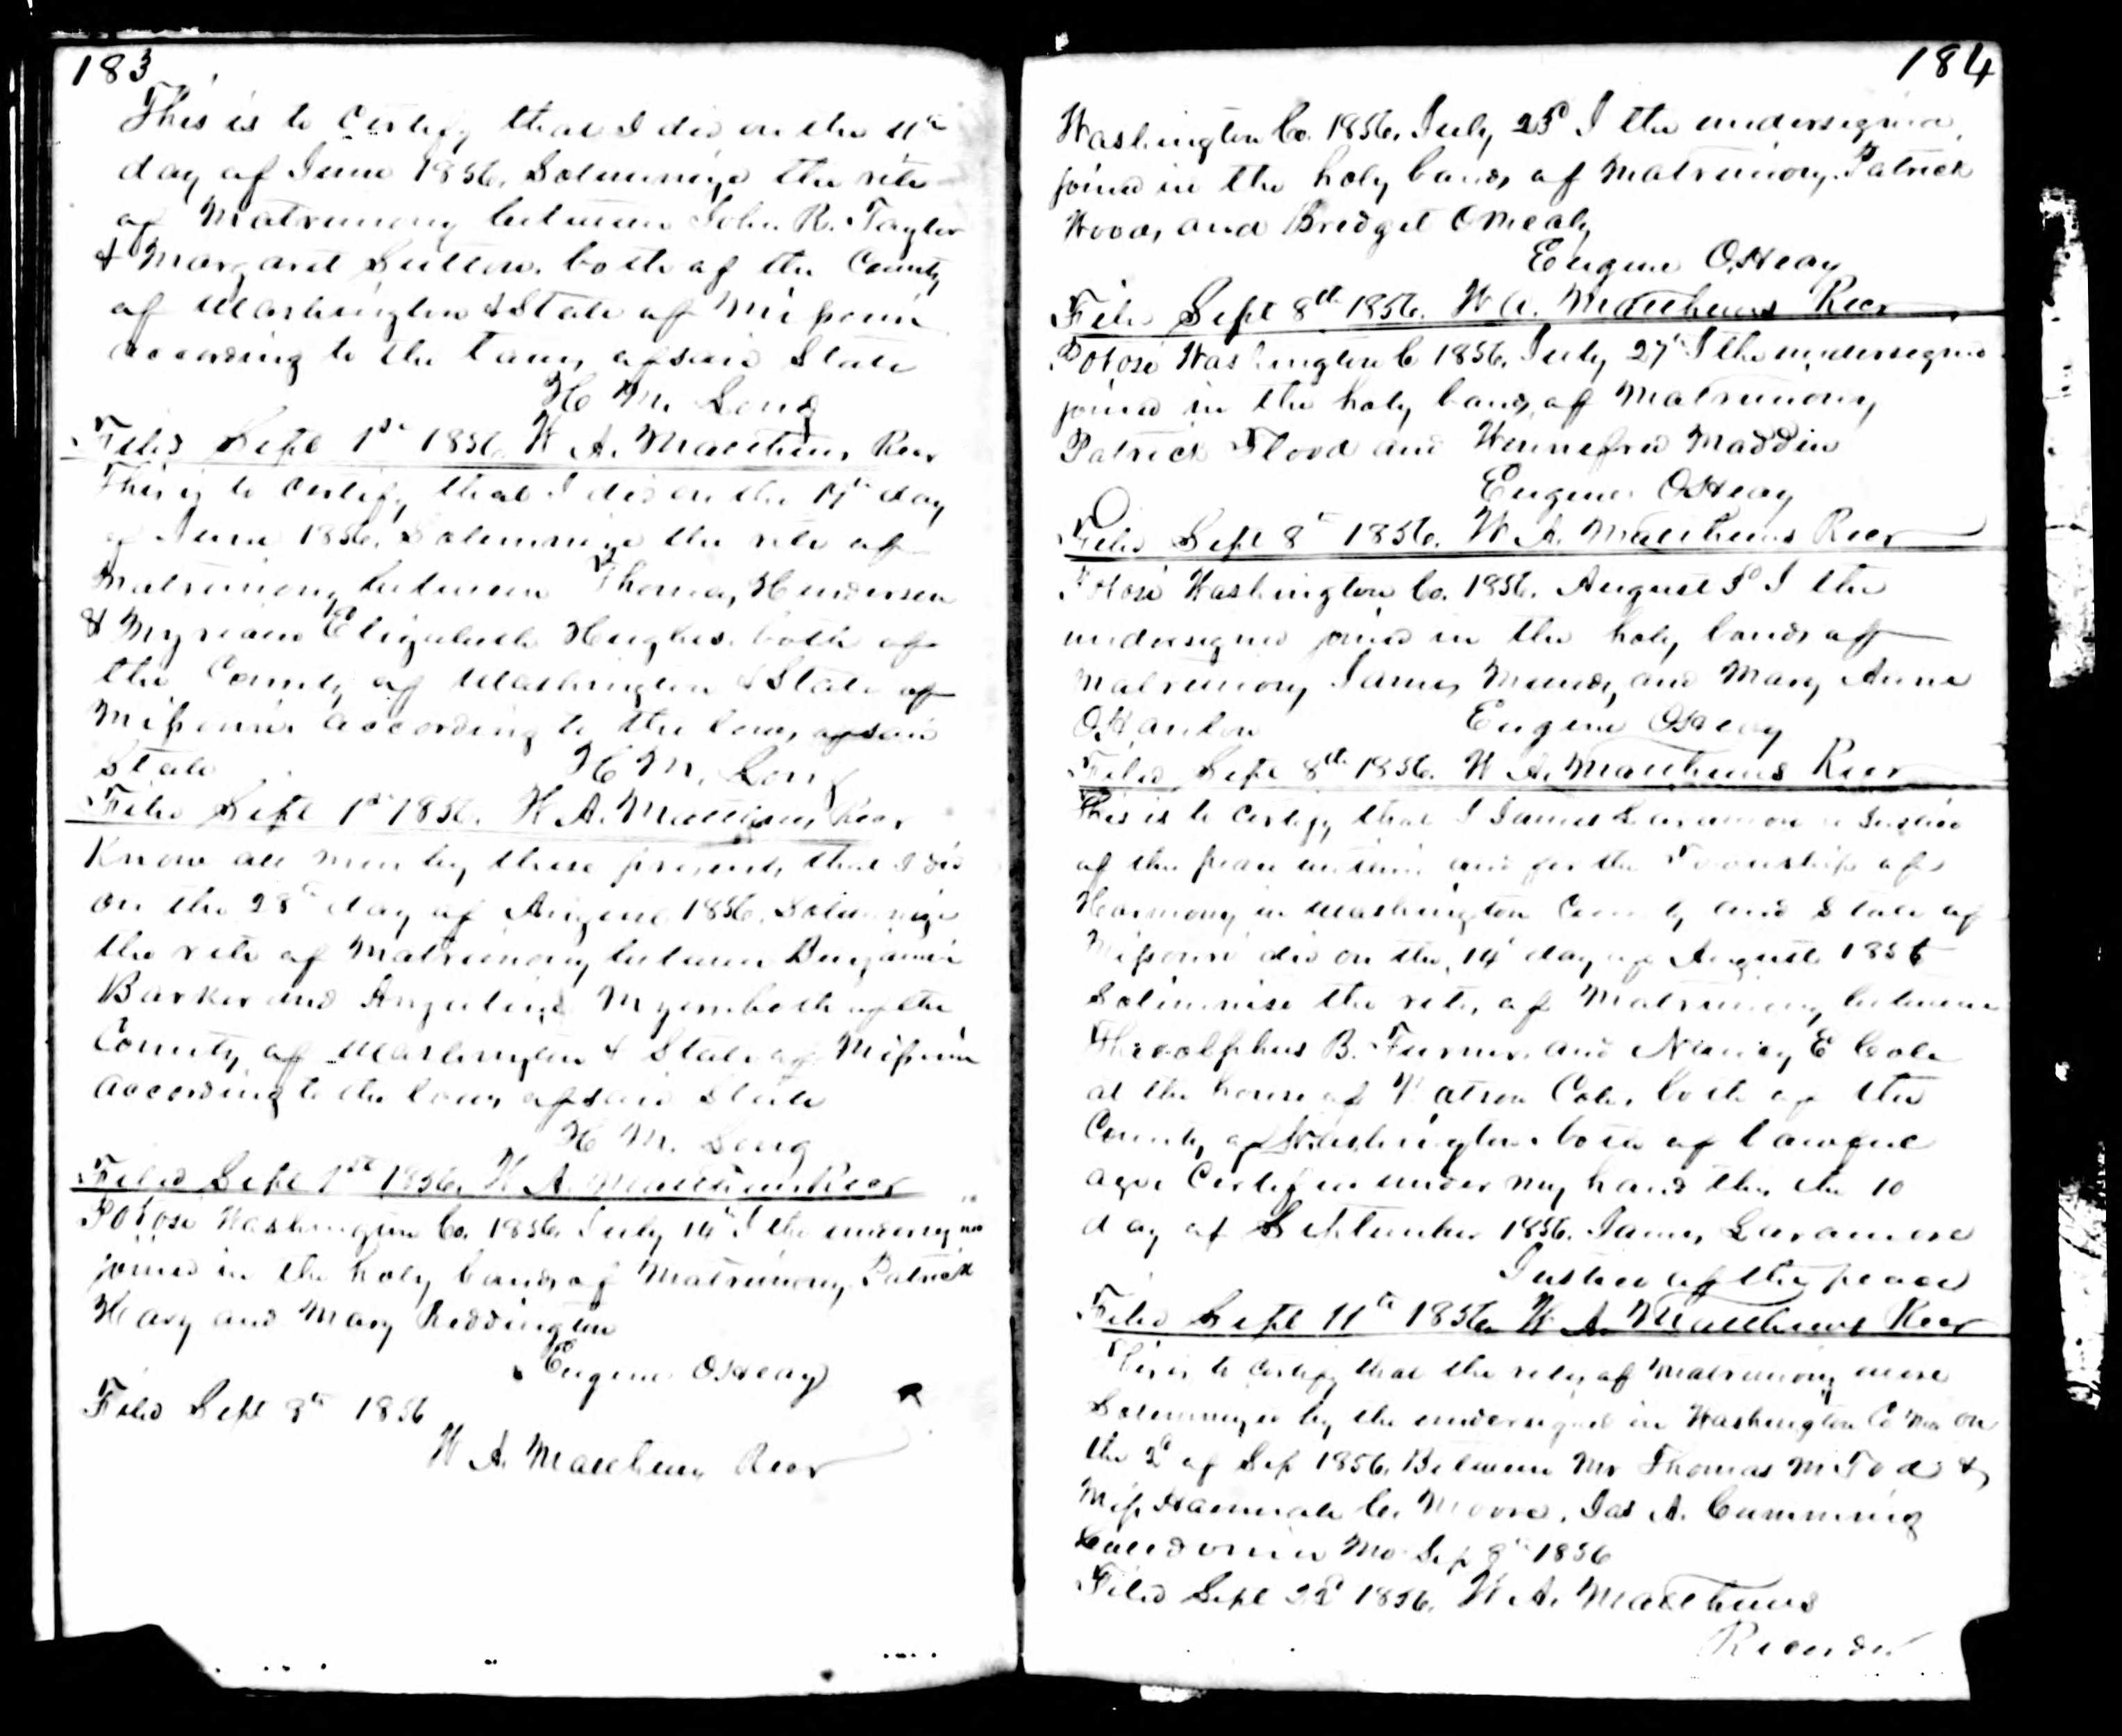 183
This is to Certify that I did on the 11th
day of June 1856. Solemnize the rite
of Matrimony between John R. Taylor
& Margaret Sutton. both of the County
of Washington & State of Missouri
according to the Laws of said State
H M. Long
Filed Sept 1st 1856. W A. Matthews Recr
This is to Certify that I did on the 17th day
of June 1856. Solemnize the rite of
Matrimony between Thomas Henderson
& Myriam Elizabeth Hughes. both of
the County of Washington & State of
Missouri according to the laws of said
State H M. Long
Filed Sept 1st 1856. W A. Matthews Recr
Know all men by these presents that I did
on the 28th day of August 1856. Solemnize
the rite of Matrimony between Benjamin
Barker and Angeline Myers both of the
County of Washington & State of Missouri
according to the laws of said State
H M. Long
Filed Sept 1st 1856. W A. Matthews Recr
Potosi Washington Co. 1856. July 14th I the undersigned
joined in the holy bands of Matrimony, Patrick
Heavy and Mary Reddington
Eugene OHeay
Filed Sept 8th 1856
W A. Matthews Recr
184
Washington Co. 1856. July 23d I the undersigned
joined in the holy bands of Matrimony. Patrick
Woods and Bridget OMealy
Eugene OHeay
Filed Sept 8th 1856. W A. Matthews Recr
Potosi Washington C 1856. July 27th I the undersigned
joined in the holy bands of Matrimony
Patrick Flood and Wennefred Maddin
Eugene OHeay
Filed Sept 8th 1856. W A. Matthews Recr
Potosi Washington Co. 1856. August I the
undersigned joined in the holy bands of
Matrimony James Mundy and Mary Anne
OHanlon Eugene OHeay
Filed Sept 8th 1856. W A. Matthews Recr
This is to Certify that I James Laramore a Justice
of the peace within and for the Township of
Harmony in Washington County and State of
Missouri did on the 14 day of August 1856
Solimnise the rites of Matrimony between
Theoolphus B. Turner and Nancy E Cole
at the house of Watson Cole, both of the
County of Washington both of lawful
age Certif under my hand this the 10
day of September 1856. James Laramore
Justice of the peace
Filed Sept 11th 1856. W A. Matthews Recr
This is to Certify that the rites of Matrimony were
Solemnized by the undersigned in Washington Co Mo on
the 2d of Sep 1856. Between Mr Thomas M Tod &
Miss Hannah C. Moore. Jas A. Cumming
Caledonia Mo Sep 8th 1856
Filed Sept 22d 1856. W A. Matthews
Recorder